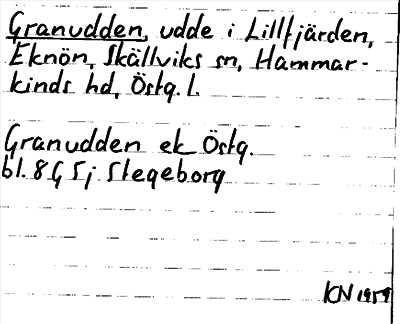 Granudden, udde i Lillfjärden,
Eknön, Skällviks sn, Hammar-
kinds hd, Östg. l.
Granudden ek Östg.
bl. 8 G 5j Stegeborg
KN 1959